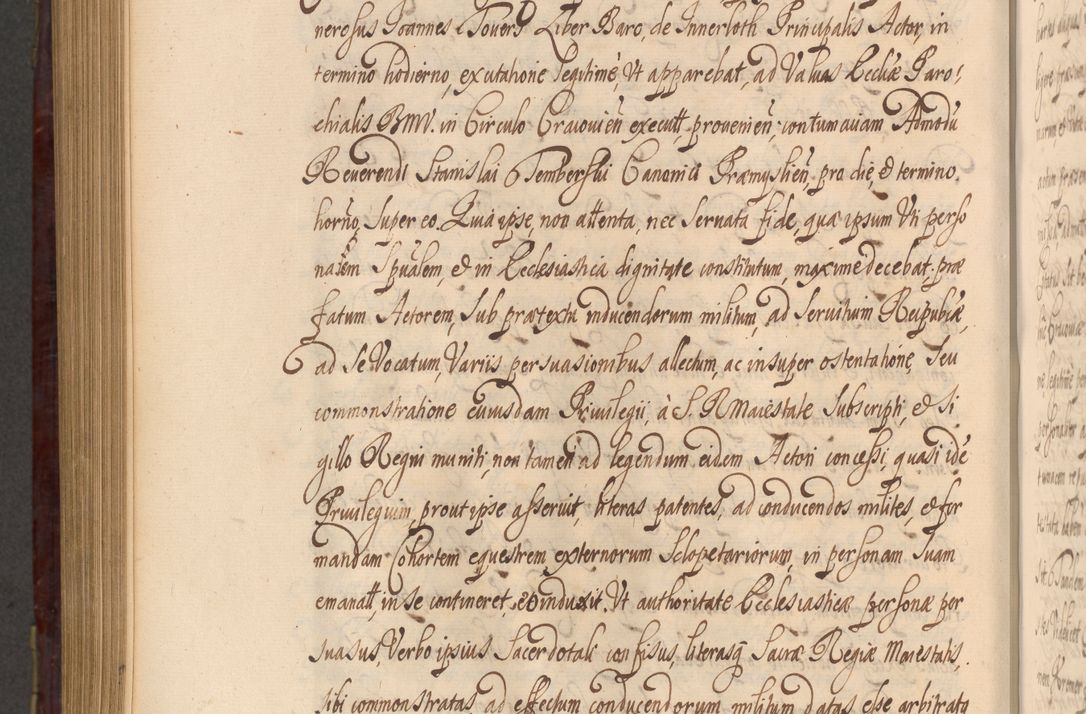 nerosus Joannes Tovers Liber Baro, de Innerloth Principalis Actor, in
termino hodierno, excutatione legitimè, Vt apparebat, ad Valuas Eccliæ Paro:
chialis BMV. in Circulo Cracouien̄ executt. prouenien̄, contumaciam Admodū
Reuerendi Stanislai Temberski Canonici Præmyslien̄, pro die, et termino
horn̄o, super eo. Quia ipse, non attenta, nec seruata fide, quæ ipsum Vti perso
natem Spūalem, et in Ecclesiastica dignitate constitutum, maxime decebat, præ
fatum Actorem, Sub prætextu inducendorum militum, ad Seruitium Reipublicæ,
ad Se Vocatum, Variis persuasionibus allectum, ac insuper ostentatione, Seu
commonstratione cuiusdam Priuilegii, à S. R Maiestate Subscripti, et Si
gillo Regni muniti, non tamen ad legendum eidem Actori concessi, quasi idē
Priuilegium, prout ipse asseruit, literas patentes, ad conducendos milites, et for
mandam Cohortem equestrem externorum Sclopetariorum, in personam Suam
emanatt, in se contineret, et induxit. Vt authoritate Ecclesiasticæ personæ per
suasus, Verbo ipsius Sacerdotali confisus, literasq̄ Sacræ Regiæ Maiestatis,
sibi commonstratas ad effectum conducendorum militum datas esse arbitrato